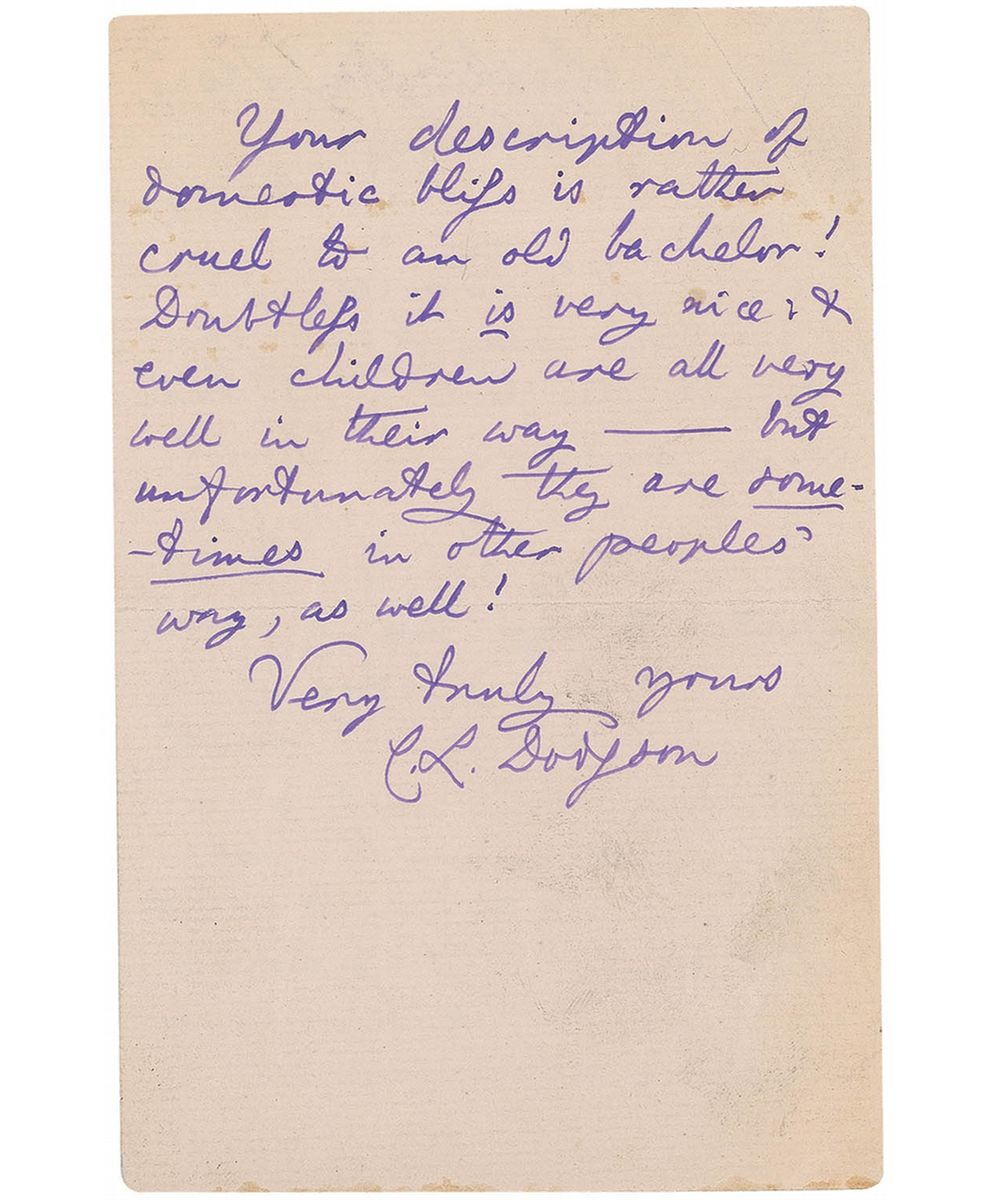 Your description of
domestic bliſs is rather
cruel to an old bachelor!
Doubtleſs it is very nice: &
even children are all very
well in their way —— but
unfortunately they are some-
-times in other peoples'
way, as well!
Very truly yours
C.L. Dodgson